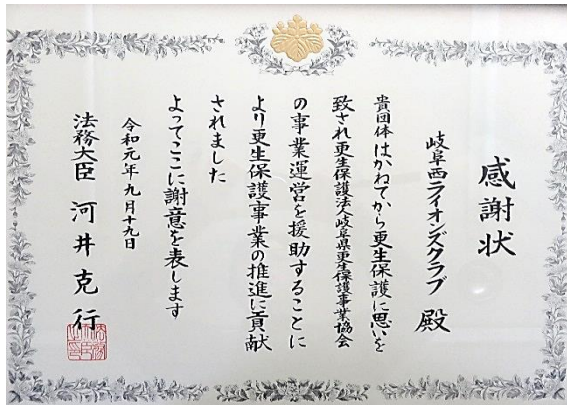 感謝状
岐阜西ライオンズクラブ 殿
貴団体はかねてから更生保護に思いを
致され更生保護法人岐阜県更生保護事業協会
の事業運営を援助することに
より更生保護事業の推進に貢献
されました
よってここに謝意を表します
令和元年九月十九日
法務大臣 河井克行